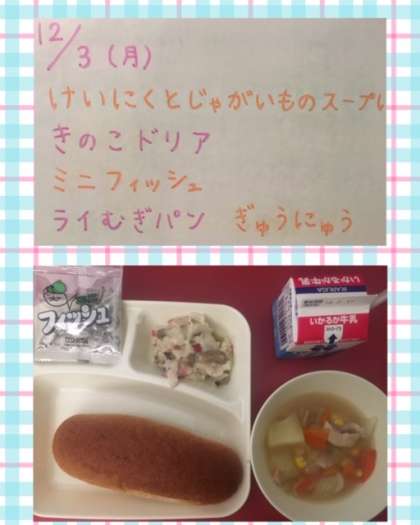 12/3(月)
けいにくとじゃがいものスープに
きのこドリア
ミニフィッシュ
ライむぎパン ぎゅうにゅう
フィッシュ
いかるが牛乳
いかるが牛乳